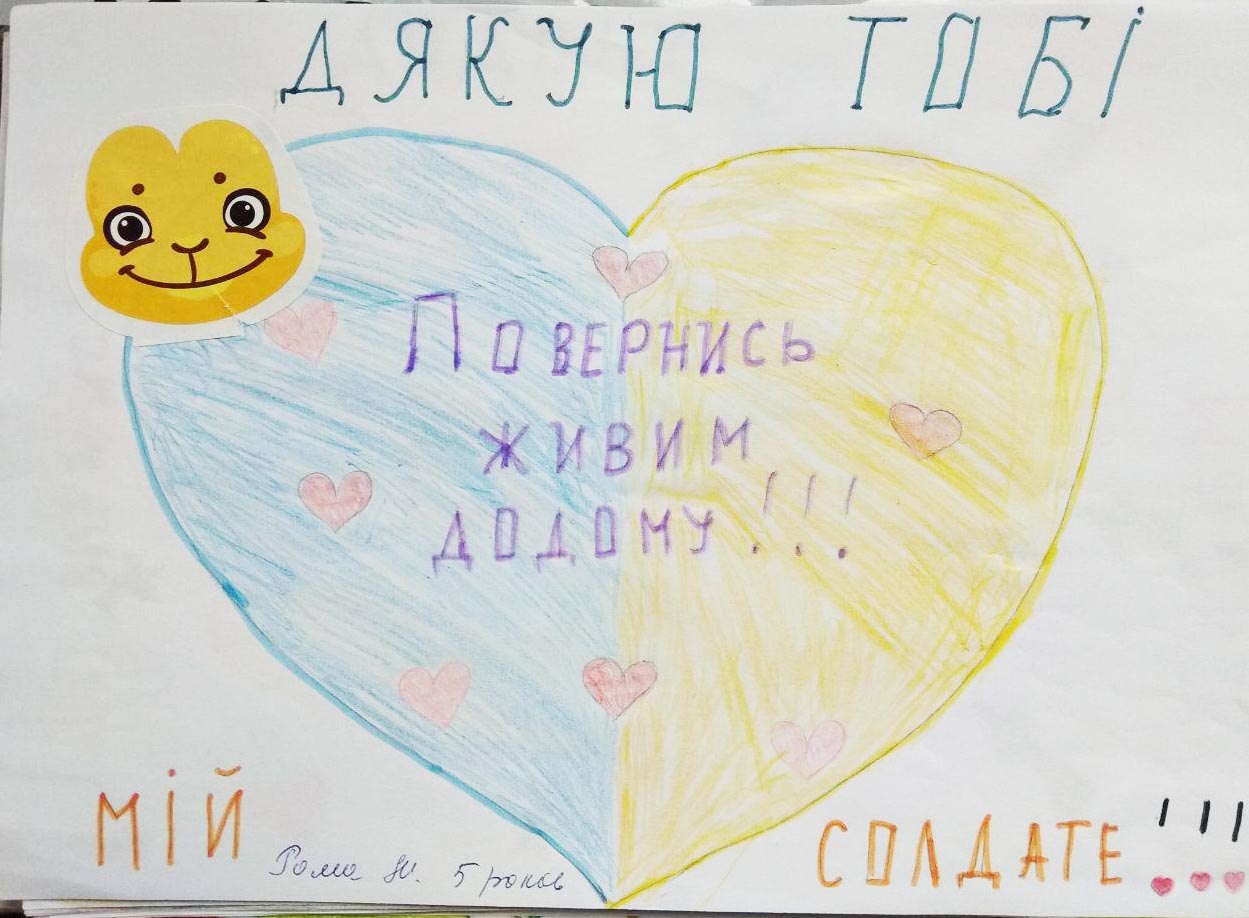 ДЯКУЮ ТОБІ
ПОВЕРНИСЬ
ЖИВИМ
ДОДОМУ!!!
МІЙ СОЛДАТЕ!!!
Рома Ж. 5 років